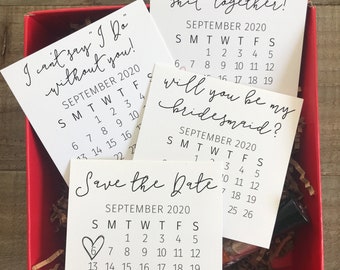 together!
SEPTEMBER 2020
S M T W T F S
1 2 3 4 5
8 9 10 11 12
I can't say "I Do"
without you!
SEPTEMBER 2020
S M T W T F S
1 2 3
6 7 8 9
13 14 15
will you be my
bridesmaid?
SEPTEMBER 2020
S M T W T F S
1 2 3 4 5
8 9 10 11 12
17 18 19
25 26
Save the Date
SEPTEMBER 2020
S M T W T F S
1 2 3 4 5
6 7 8 9 10 11 12
13 14 15 16 17 18 19